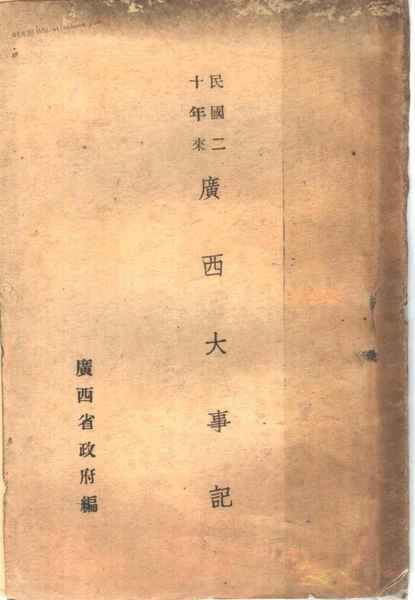 民國二
十年來
廣西大事記
廣西省政府編